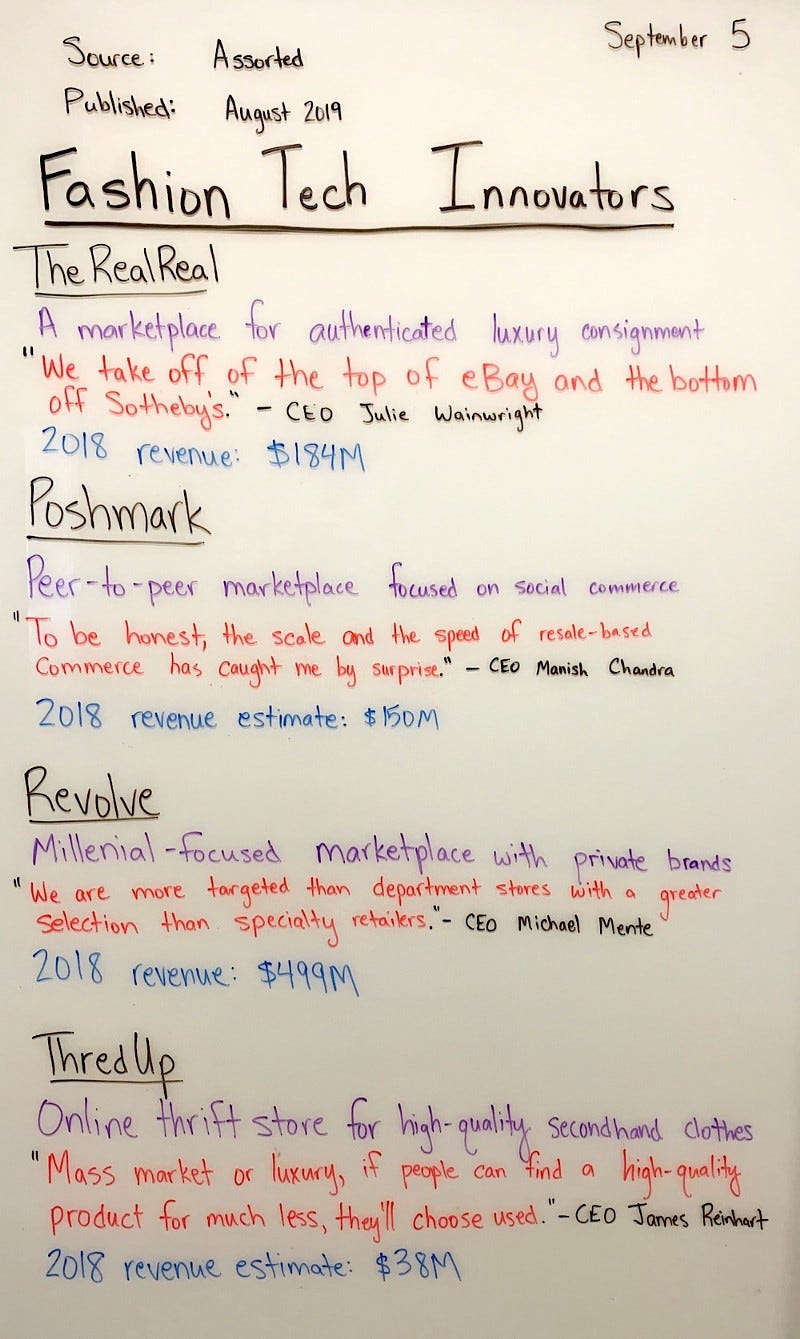 September 5
Source: Assorted
Published: August 2019
Fashion Tech Innovators
TheRealReal
A marketplace for authenticated luxury consignment
"We take off of the top of eBay and the bottom
off Sotheby's." - CEO Julie Wainwright
2018 revenue: $184M
Poshmark
Peer-to-peer marketplace focused on social commerce
"To be honest, the scale and the speed of resale-based
Commerce has caught me by surprise." - CEO Manish Chandra
2018 revenue estimate: $150M
Revolve
Millenial-focused marketplace with private brands
"We are more targeted than department stores with a greater
selection than specialty retailers." - CEO Michael Mente
2018 revenue: $499M
ThredUp
Online thrift store for high-quality secondhand clothes
"Mass market or luxury, if people can find a high-quality
product for much less, they'll choose used." - CEO James Reinhart
2018 revenue estimate: $38M